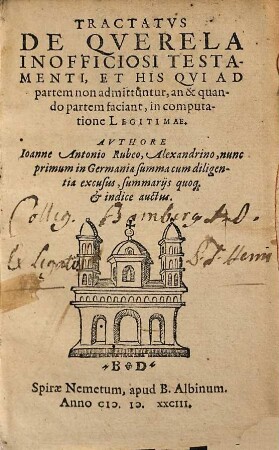 TRACTATVS
DE QVERELA
INOFFICIOSI TESTA-
MENTI, ET HIS QVI AD
partem non admittũtur, an & quan-
do partem faciant, in computa-
tione LEGITIMAE.
AVTHORE
Ioanne Antonio Rubeo, Alexandrino, nunc
primum in Germania summa cum diligen-
tia excusus, summarijs quoq,
& indice auctus.
Colleg. Bamberg
Ex Legato
B D
Spiræ Nemetum, apud B. Albinum.
Anno CIↃ. IↃ. XXCIII.